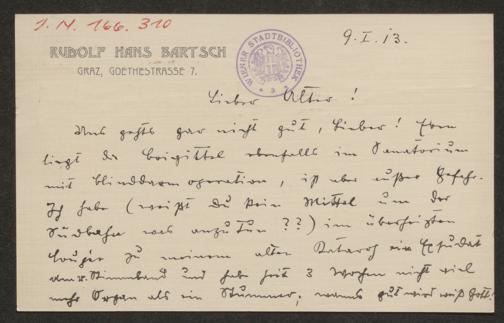 J. N. 166.310
9. I. 13.
RUDOLF HANS BARTSCH
GRAZ, GOETHESTRASSE 7.
WIENER STADTBIBLIOTHEK
Lieber Alter!
Uns gehts gar nicht gut, Lieber! Eben
liegt die Brigittel ebenfalls im Sanatorium
mit Blinddarmoperation, ist aber außer Gefahr.
Ich habe (weißt Du kein Mittel um der
Südbahn was anzutun??) im überheizten
Coupé zu meinem alten Katarrh ein Exsudat
am r. Stimmband und habe seit 3 Wochen nicht viel
mehr Organ als ein Stummer; wanns gut wird weiß Gott!